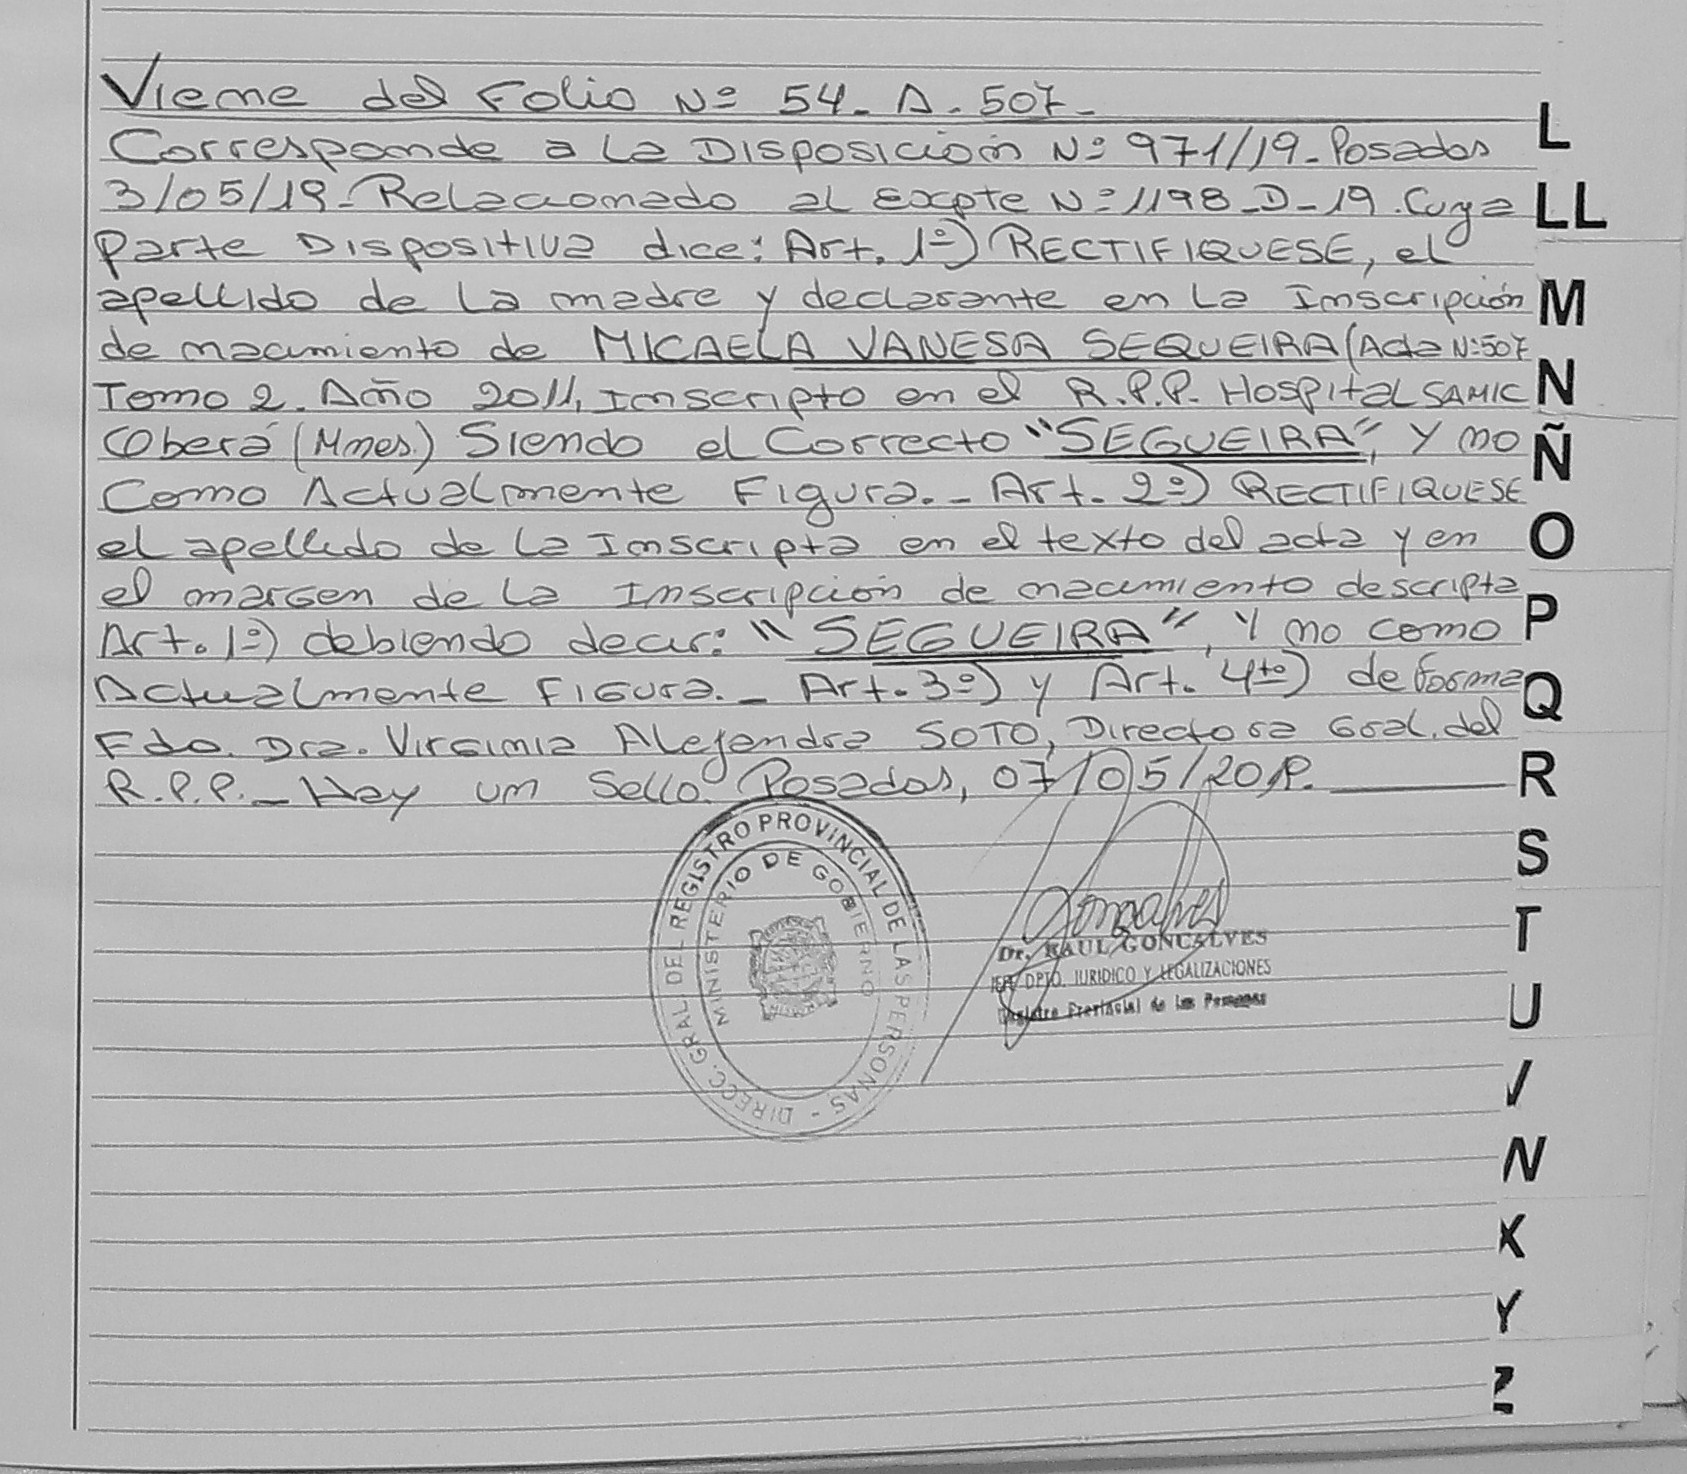 Viene del Folio Nº 54_ A. 507_
Corresponde a la Disposición Nº 971//19_ Posadas
3/05/19_ Relacionado al Expte Nº 1198_D_19. Cuya
parte Dispositiva dice: Art. 1º) RECTIFIQUESE, el
apellido de la madre y declarante en la Inscripción
de nacimiento de MICAELA VANESA SEQUEIRA (Acta Nº507
Tomo 2. Año 2011, Inscripto en el R.P.P. Hospital SAMIC
Oberá (Mnes.) Siendo el Correcto "SEGUEIRA", y no
Como Actualmente Figura._ Art. 2º) RECTIFIQUESE
el apellido de la Inscripta en el texto del acta y en
el margen de la Inscripción de nacimiento descripta
Art. 1º) debiendo decir: "SEGUEIRA", Y no como
Actualmente Figura._ Art. 3º) y Art. 4to) de forma
Fdo. Dra. Virginia Alejandra SOTO, Directora Gral. del
R.P.P._ Hay un Sello. Posadas, 07/05/2019.
DIRECC. GRAL DEL REGISTRO PROVINCIAL DE LAS PERSONAS -
MINISTERIO DE GOBIERNO
Goncalves
Dr. RAUL GONCALVES
JEFE DPTO. JURIDICO Y LEGALIZACIONES
Registro Provincial de las Personas
L
LL
M
N
Ñ
O
P
Q
R
S
T
U
V
X
Y
Z